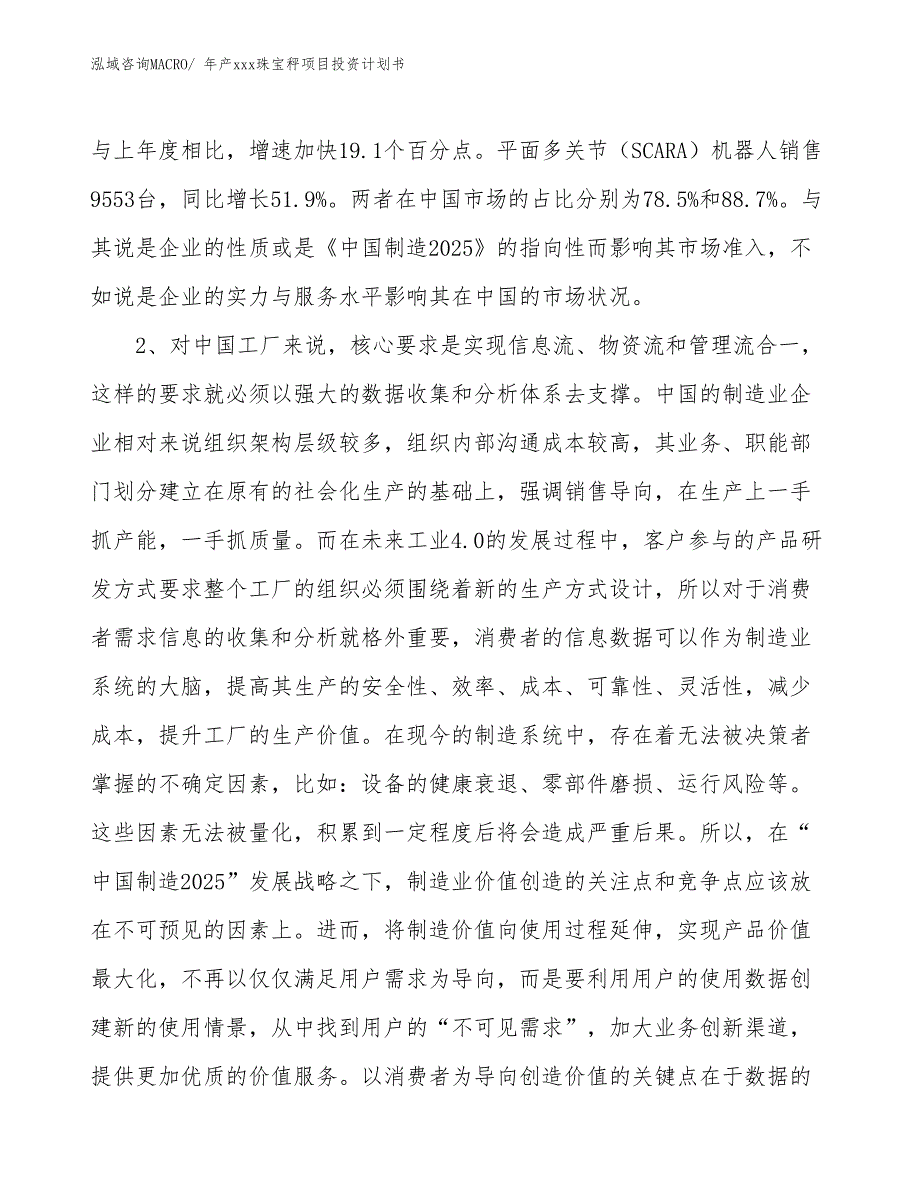 泓域咨询MACRO/ 年产xxx珠宝秤项目投资计划书
与上年度相比，增速加快19.1个百分点。平面多关节（SCARA）机器人销售
9553台，同比增长51.9%。两者在中国市场的占比分别为78.5%和88.7%。与
其说是企业的性质或是《中国制造2025》的指向性而影响其市场准入，不
如说是企业的实力与服务水平影响其在中国的市场状况。
2、对中国工厂来说，核心要求是实现信息流、物资流和管理流合一，
这样的要求就必须以强大的数据收集和分析体系去支撑。中国的制造业企
业相对来说组织架构层级较多，组织内部沟通成本较高，其业务、职能部
门划分建立在原有的社会化生产的基础上，强调销售导向，在生产上一手
抓产能，一手抓质量。而在未来工业4.0的发展过程中，客户参与的产品研
发方式要求整个工厂的组织必须围绕着新的生产方式设计，所以对于消费
者需求信息的收集和分析就格外重要，消费者的信息数据可以作为制造业
系统的大脑，提高其生产的安全性、效率、成本、可靠性、灵活性，减少
成本，提升工厂的生产价值。在现今的制造系统中，存在着无法被决策者
掌握的不确定因素，比如：设备的健康衰退、零部件磨损、运行风险等。
这些因素无法被量化，积累到一定程度后将会造成严重后果。所以，在“
中国制造2025”发展战略之下，制造业价值创造的关注点和竞争点应该放
在不可预见的因素上。进而，将制造价值向使用过程延伸，实现产品价值
最大化，不再以仅仅满足用户需求为导向，而是要利用用户的使用数据创
建新的使用情景，从中找到用户的“不可见需求”，加大业务创新渠道，
提供更加优质的价值服务。以消费者为导向创造价值的关键点在于数据的